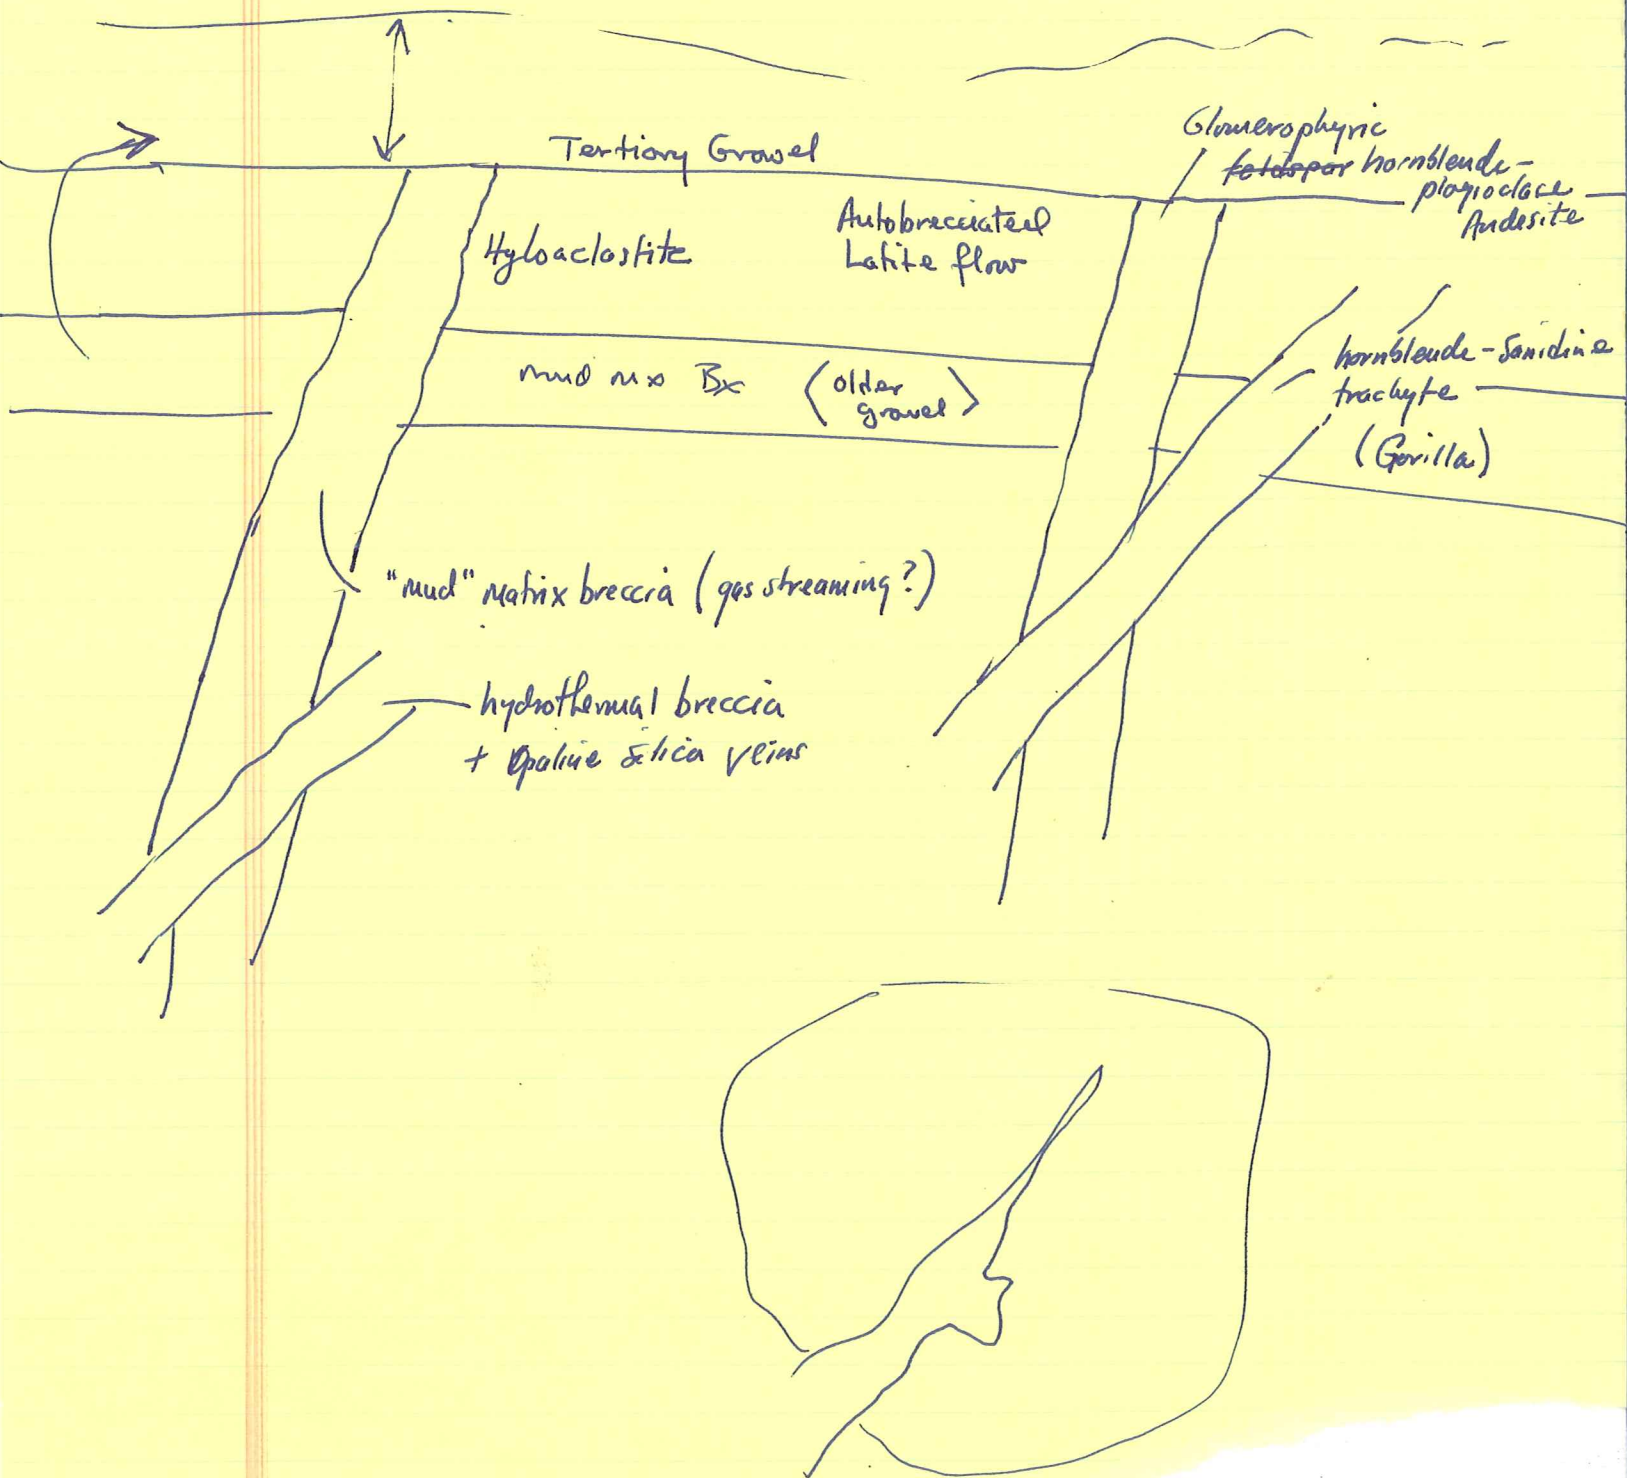 Tertiary Gravel
Glomerophyric
feldspar hornblende-
plagioclase
Andesite
Hyloaclastite
Autobrecciated
Latite flow
mud mx Bx (older
gravel)
hornblende-Sanidine
trachyte
(Gorilla)
"mud" matrix breccia (gas streaming?)
hydrothermal breccia
+ Opaline Silica veins